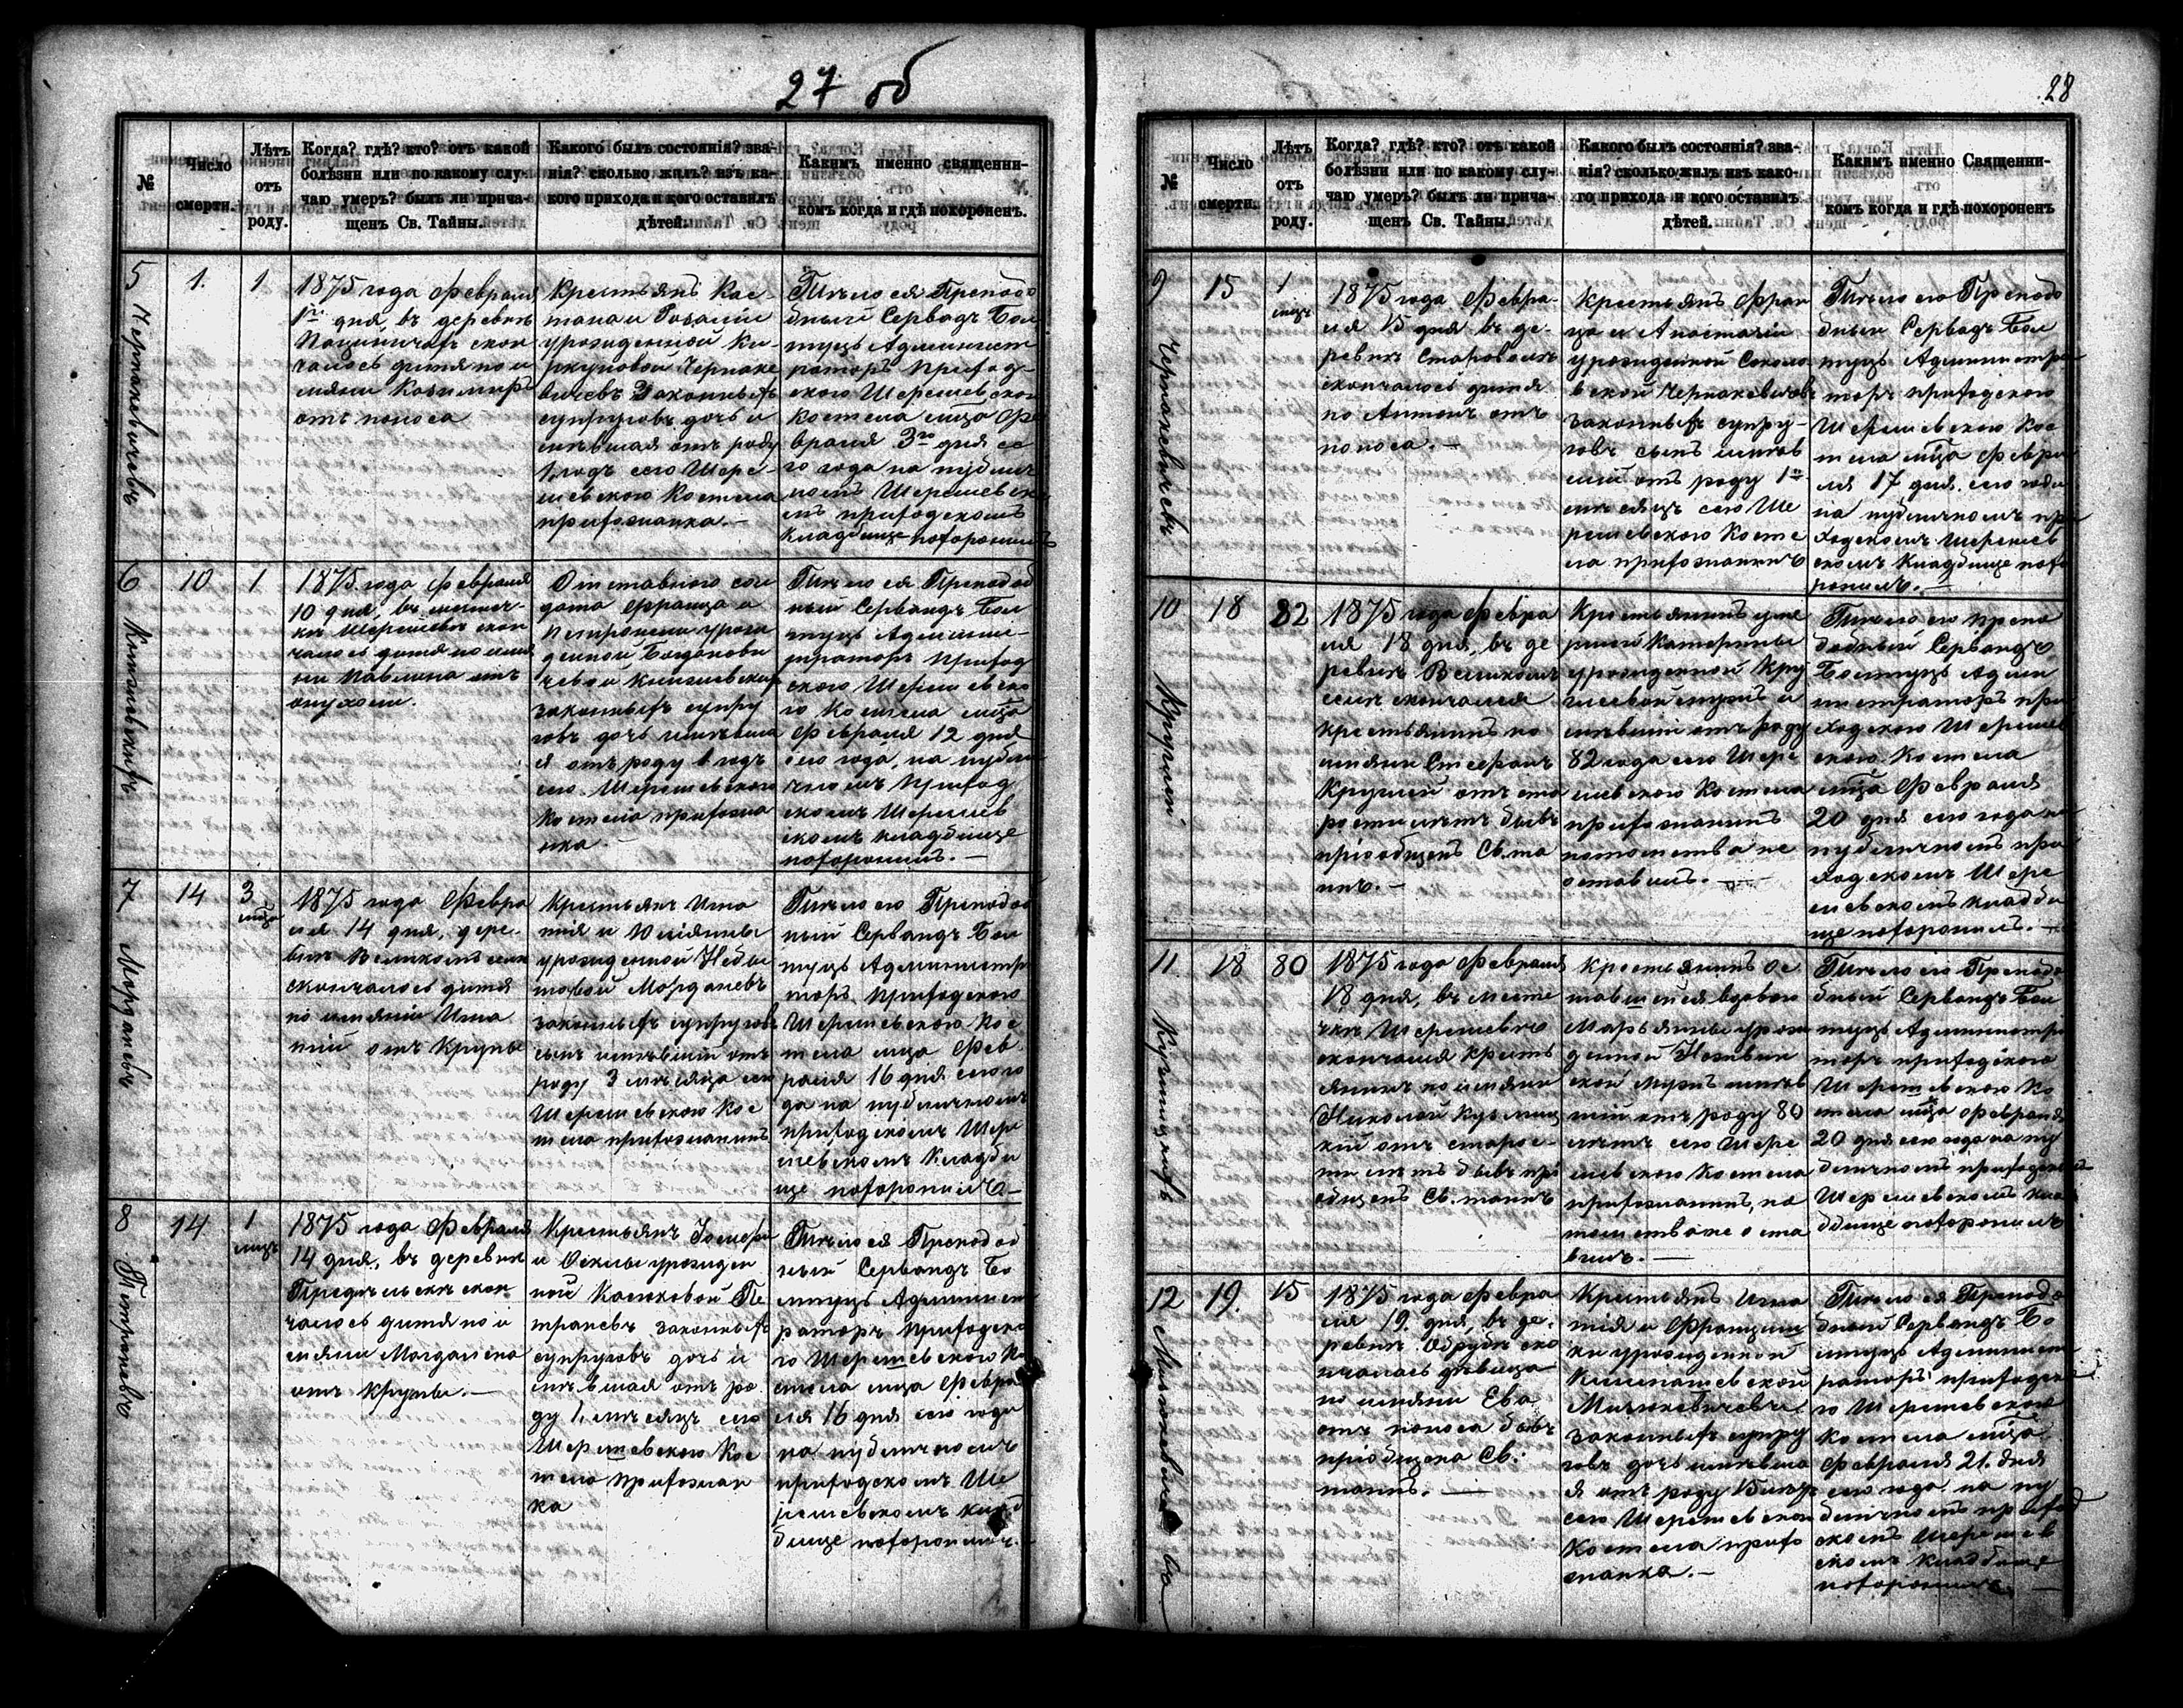 27 об
№
Число
смерти.
Лѣтъ
отъ
роду.
Когда? гдѣ? кто? отъ какой
болѣзни или по какому слу-
чаю умеръ? былъ ли прича-
щенъ Св. Тайны.
Какого былъ состоянія? зва-
нія? сколько жилъ? изъ ка-
кого прихода и кого оставилъ
дѣтей.
Какимъ именно священни-
комъ когда и гдѣ похороненъ.
5
Чернакевичевъ
1.
1
1875 года Февраля
1го дня, въ деревнѣ
скон
чалось дитя по и
мени Казимира
отъ поноса
Крестьянъ Кас-
тана и Розаліи
урожденной
Чернаке
вичевъ Законныхъ
супруговъ дочь и
мѣвшая отъ роду
1 годъ сего Шере-
шевского Костела
прихожанка.—
Тѣло ея Преподо
бный Сервадъ Бол
туць Админист
раторъ Приход-
ского Шерешевского
Костела мца Фе
враля 3го дня се
го года на публич
номъ Шерешевско
мъ приходскомъ
Кладбище похоронилъ
6
10
1
1875 года Февраля
10 дня, въ местеч-
кѣ Шерешевѣ скон
чалось дитя по име
ни Павлина отъ
опухоли.
Отставного сол
дата Франца и
Петронели урож
денной Богданови
чевой
законныхъ супру
говъ дочь имѣвша
я отъ роду 1 годъ
сего Шерешевского
Костела прихожа
нка.—
Тѣло ея Преподоб
ный Сервандъ Бол
туць Админи-
траторъ Приход
ского Шерешевско
го Костела мца
Февраля 12 дня
сего года, на публи
чномъ Приход
скомъ Шерешев
скомъ кладбище
похоронилъ.—
7
Морданевъ
14
3
мца
1875 года Февра
ля 14 дня, дере-
внѣ Великомъ селѣ
скончалось дитя
по имени Игна
тій отъ Крупы
Крестьянъ Игна
тія и Юліянны
урожденной
Морданевъ
законныхъ супруговъ
сынъ имѣвшій отъ
роду 3 мѣсяца сего
Шерешевского Кос
тела прихожанинъ
Тѣло его Преподоб
ный Сервандъ Бол
туць Администра
торъ Приходского
Шерешевского Кос
тела мца Фев
раля 16 дня сего го
да на публичномъ
приходскомъ Шере
шевскомъ Кладби
ще похоронилъ—
8
Петраневъ
14
1
мцъ
1875 года Февраля
14 дня, въ деревнѣ
скон
чалось дитя по и
мени Магдалена
отъ крупы.—
Крестьянъ Іосифа
и урожден
ной Казюковой Пе
траневъ законныхъ
супруговъ дочь и
мѣвшая отъ ро
ду 1 мѣсяцъ сего
Шерешевского Кос
тела прихожан
ка
Тѣло ея Преподоб
ный Сервандъ Бо
лтуць Админист
раторъ Приходско
го Шерешевского Ко
стела мца Февра
ля 16 дня сего года
на публичномъ
приходскомъ Ше
решевскомъ клад
бище похоронилъ.
28
№
Число
смерти.
Лѣтъ
отъ
роду.
Когда? гдѣ? кто? отъ какой
болѣзни или по какому слу-
чаю умеръ? былъ ли прича-
щенъ Св. Тайны.
Какого былъ состоянія? зва-
нія? сколько жилъ изъ како-
го прихода и кого оставилъ
дѣтей.
Какимъ именно Священни-
комъ когда и гдѣ похороненъ
9
Чернакевичевъ
15
1
мцъ
1875 года Февра-
ля 15 дня въ де-
ревнѣ Старовольѣ
скончалось дитя
по Антонъ отъ
поноса.—
Крестьянъ Фран
ца и Анастазіи
урожденной Соколо
вской Чернакевичевъ
законныхъ супру-
говъ сынъ имѣв
шій отъ роду 1нъ
мѣсяцъ сего Ше
решевского Косте
ла прихожанинъ
Тѣло его Преподо
бный Сервадъ Бол
туць Администра
торъ приходского
Шерешевского Кос
тела мца Февра
ля 17 дня сего года
на публичномъ при
ходскомъ Шерешев
скомъ Кладбище похо
ронилъ.—
10
Круглый
18
82
1875 года Февра
ля 18 дня, въ де
ревнѣ Великомъ
селѣ скончался
крестьянинъ по
имени Стефанъ
Круглый отъ ста
рости лѣтъ бывъ
пріобщенъ Св. та
инъ.—
Крестьянинъ уме
ршей Катерины
урожденной Кру
глевой мужъ и
мѣвшій отъ роду
82 года сего Шере
шевского Костела
прихожанинъ
потомства не
оставилъ.—
Тѣло его препо
добный Сервандъ
Болтуць Адми
нистраторъ при
ходского Шерешев
ского Костела
мца Февраля
20 дня сего года на
публичномъ при
ходскомъ Шере
шевскомъ кладби
ще похоронилъ.—
11
18
80
1875 года Февраля
18 дня, въ месте
чкѣ Шерешевѣ
скончался кресть
янинъ по имени
Николай Кузьмиц
кій отъ старос-
ти лѣтъ бывъ прі
общенъ Св. таинъ
Крестьянинъ ос
тавшейся вдовою
Марьянны урож
денной
мужъ имѣв
шій отъ роду 80
лѣтъ сего Шере
шевского Костела
прихожанинъ, по
томства не оста
вилъ.—
Тѣло его Преподо
бный Сервандъ Бол
туць Администра
торъ приходского
Шерешевского Ко
стела мца Февраля
20 дня сего года на пу
бличномъ приходскомъ
Шерешевскомъ кла
дбище похоронилъ
12
19.
15
1875 года Февра
ля 19. дня, въ де-
ревнѣ Обрубѣ ско
нчалась дѣвица
по имени Ева
отъ поноса бывъ
пріобщена Св.
таинъ.—
Крестьянъ Игна
тія и Францишк
ки урожденной
законныхъ супру
говъ дочь имѣвша
я отъ роду 15 лѣтъ
сего Шерешевского
Костела прихо
жанка.—
Тѣло ея Преподо
бный Сервандъ Бо
лтуць Админист
раторъ приходско
го Шерешевского
Костела мца
Февраля 21. дня
сего года на пу
бличномъ приход
скомъ Шерешев
скомъ Кладбище
похоронилъ.—